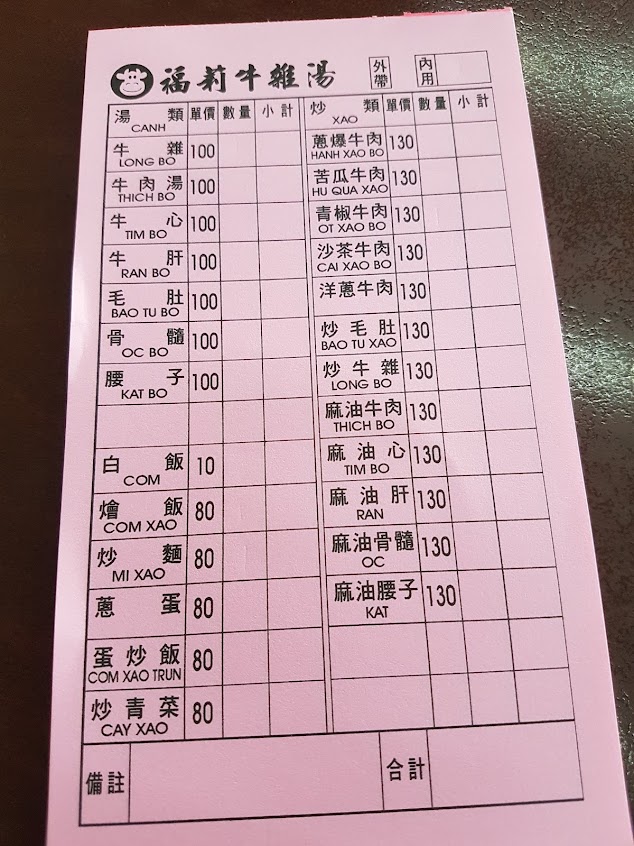 福莉牛雜湯 外帶 內用
湯類 單價 數量 小計 炒類 單價 數量 小計
CANH XAO
牛雜 100 蔥爆牛肉 130
LONG BO HANH XAO BO
牛肉湯 100 苦瓜牛肉 130
THICH BO HU QUA XAO
牛心 100 青椒牛肉 130
TIM BO OT XAO BO
牛肝 100 沙茶牛肉 130
RAN BO CAI XAO BO
毛肚 100 洋蔥牛肉 130
BAO TU BO
骨髓 100 炒毛肚 130
OC BO BAO TU XAO
腰子 100 炒牛雜 130
KAT BO LONG BO
麻油牛肉 130
THICH BO
白飯 10 麻油心 130
COM TIM BO
燴飯 80 麻油肝 130
COM XAO RAN
炒麵 80 麻油骨髓 130
MI XAO OC
蔥蛋 80 麻油腰子 130
KAT
蛋炒飯 80
COM XAO TRUN
炒青菜 80
CAY XAO
備註 合計